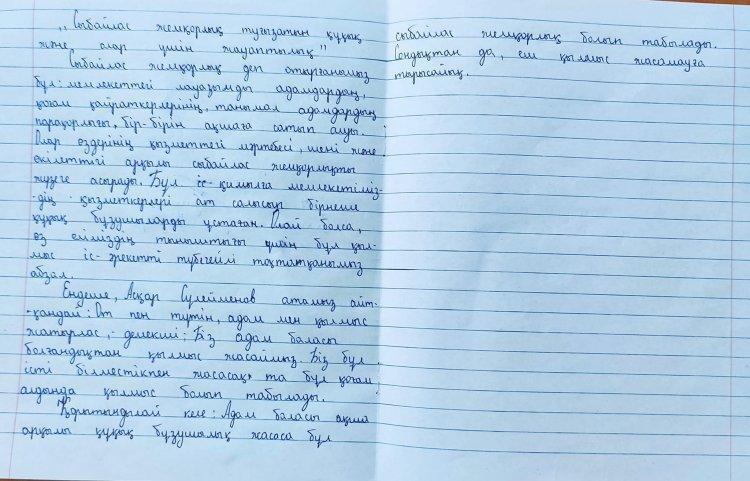 ,,Сыбайлас жемқорлық туғызатын құқық
және олар үшін жауаптылық"
Сыбайлас жемқорлық деп отырғанымыз
бұл: мемлекеттегі лауазымды адамдардың,
қоғам қайраткерлерінің, танымал адамдардың
парақорлығы, бір-бірін ақшаға сатып алуы.
Олар өздерінің қызметтегі мәртебесі, шені және
өкілеттігі арқылы сыбайлас жемқорлықты
жүзеге асырады. Бұл іс-қимылға мемлекетіміз-
-дің қызметкерлері ат салысып бірнеше
құқық бұзушыларды ұстаған. Олай болса,
өз еліміздің тыныштығы үшін бұл қыл-
мыс іс-әрекетті түбегейлі тоқтатқанымыз
абзал.
Ендеше, Асқар Сүлейменов атамыз айт-
-қандай: От пен түтін, адам мен қылмыс
жатырлас, - демекші: Біз адам баласы
болғандықтан қылмыс жасаймыз. Біз бұл
істі білместікпен жасасақ та бұл қоғам
алдында қылмыс болып табылады.
Қорытындылай келе: Адам баласы ақша
арқылы құқық бұзушылық жасаса бұл
сыбайлас жемқорлық болып табылады.
Сондықтан да, еш қылмыс жасамауға
тырысайық.